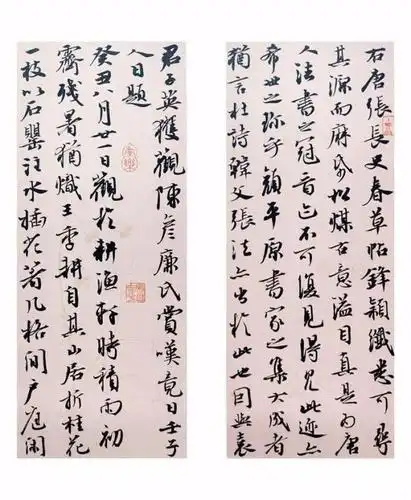 右唐張長史春草帖鋒穎纖悉可尋
其源而麻帋松煤古意溢目真是為唐
人法書之冠亡不可復見得見此迹亦
希世之珎乎顏平原書家之集大成者
猶言杜詩韓文張法亦出於此也因與袁
君子英獲觀陳彥廉氏賞嘆竟日壬子
人日題
癸丑八月廿一日觀於耕漁軒時積雨初
霽殘暑猶熾王季耕自其山居折桂花
一枝以石罌注水插花著几格間戶庭閑